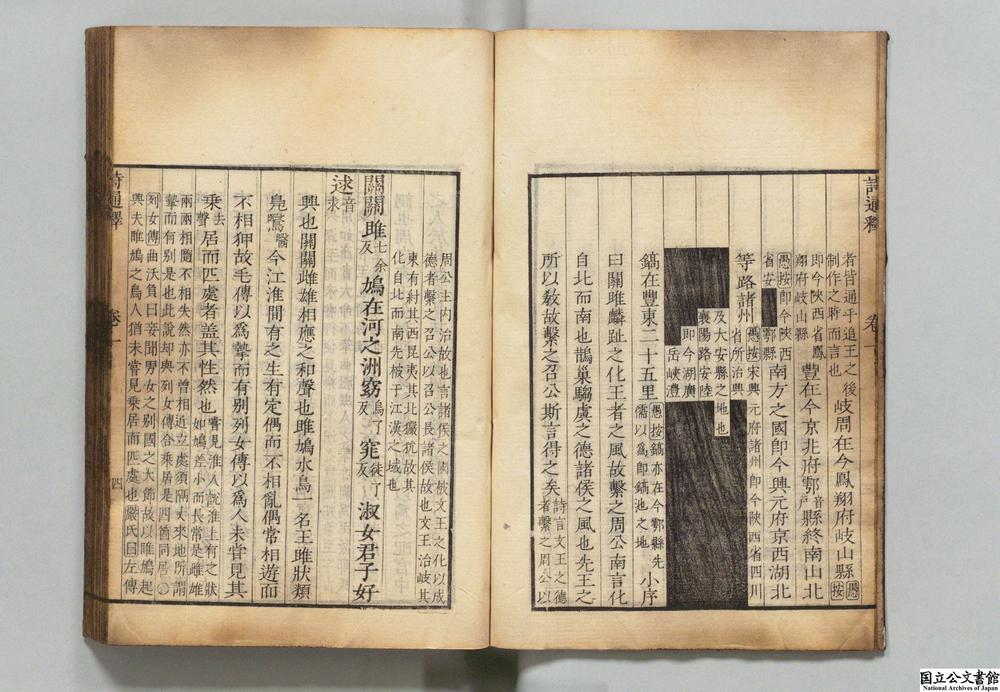 詩通釋
卷一
者皆通乎追王之後
制作之時而言也
岐周在今鳳翔府岐山縣
愚按
即今陝西省鳳
翔府岐山縣
豐在今京兆府鄠戶音縣終南山北
愚按即今陝西
省安
鄠縣
南方之國即今興元府京西湖北
等路諸州
愚按宋興元府諸州即今陝西省四川
省所治興
及大安縣之地也
襄陽路安陸
即今湖廣
岳峽澧
鎬在豐東二十五里
愚按鎬亦在今鄠縣先
儒以爲即鎬池之地
小序
曰關雎麟趾之化王者之風故繫之周公南言化
自北而南也鵲巢騶虞之德諸侯之風也先王之
所以敎故繫之召公斯言得之矣
詩言文王之德
者繫之周公以
周公主内治故也言諸侯之國被文王之化以成
德者繫之召公以召公長諸侯故也文王治岐其
東有紂其西昆夷其北玁狁故其
化自北而南先被于江漢之域也
關關雎七余反鳩在河之洲窈烏了反窕徒了反淑女君子好
逑音求
興也關關雌雄相應之和聲也雎鳩水鳥一名王雎狀類
鳧鷖醫今江淮間有之生有定偶而不相亂偶常相遊而
不相狎故毛傳以爲摯而有别列女傳以爲人未嘗見其
乘去聲居而匹處者盖其性然也
嘗見淮人說淮上有之狀
如鳩差小而長常是雌雄
兩兩相隨不相失然亦不曾相近立處須隔丈來地所謂
摯而有别是也此說却與列女傳合乘居是四箇同居○
列女傳曲沃負曰妾聞男女之别國之大節故以雎鳩起
興夫雎鳩之鳥人猶未嘗見乘居而匹處也嚴氏曰左傳
詩通釋
卷一
四
国立公文書館
National Archives of Japan